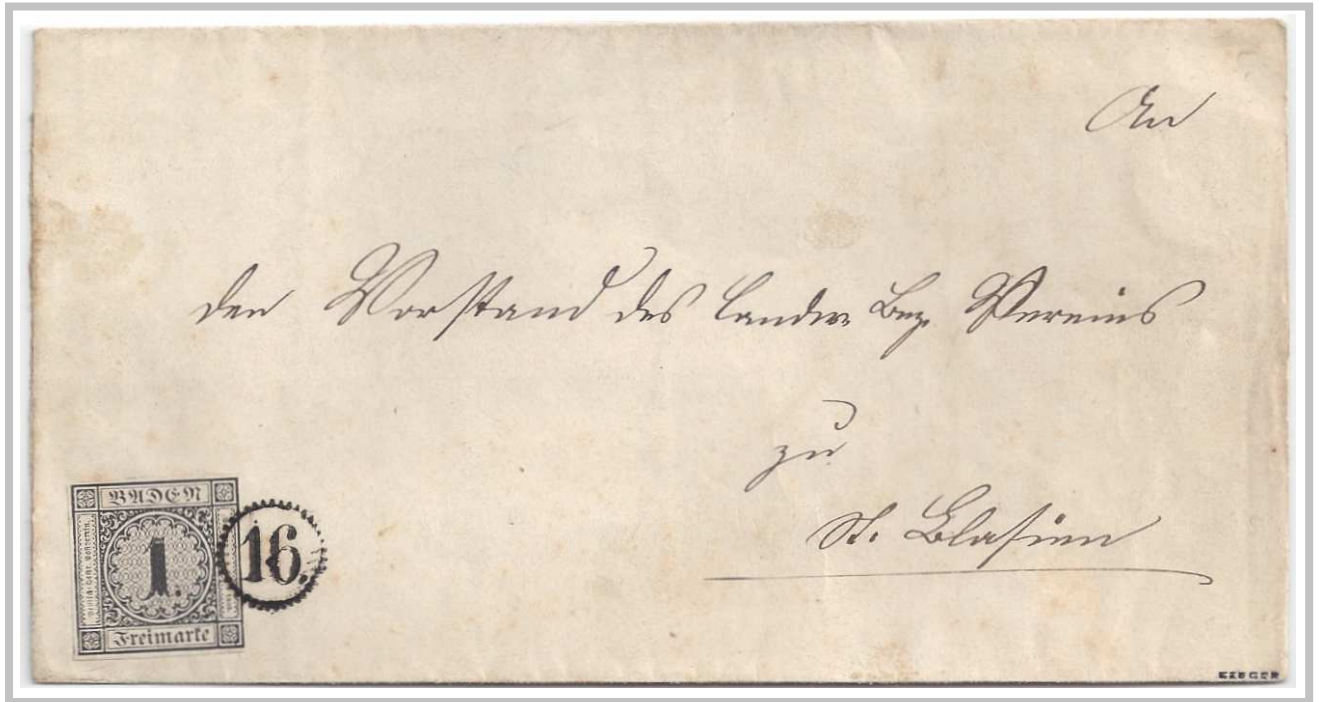 An
den Vorstand des landw. Bez. Vereins
zu
St. Blasien
BADEN
1.
Freimarke
16.